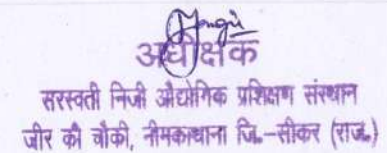 अधीक्षक
सरस्वती निजी औद्योगिक प्रशिक्षण संस्थान
जीर की चौकी, नीमकाथाना जि.-सीकर (राज.)